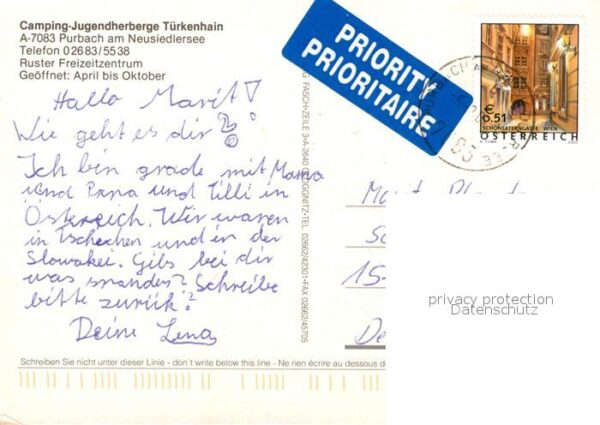 Camping-Jugendherberge Türkenhain
A-7083 Purbach am Neusiedlersee
Telefon 02683/5538
Ruster Freizeitzentrum
Geöffnet: April bis Oktober
Hallo Marit!
Wie geht es dir?
Ich bin grade mit Mama
und Papa und Tilli in
Österreich. Wir waren
in Tschechen und in der
Slowakei. Gibs bei dir
was Schreibe
bitte zurück!
Deine Lena
Schreiben Sie nicht unter dieser Linie - don't write below this line - Ne rien écrire au dessous de
FASCH-ZEILE 3•A-2640 GLOGGNITZ•TEL. 02662/42301•FAX 02662/45705
PRIORITY
PRIORITAIRE
€ 0,51
SCHÖNLATERNGASSE WIEN
ÖSTERREICH
15-
privacy protection
Datenschutz